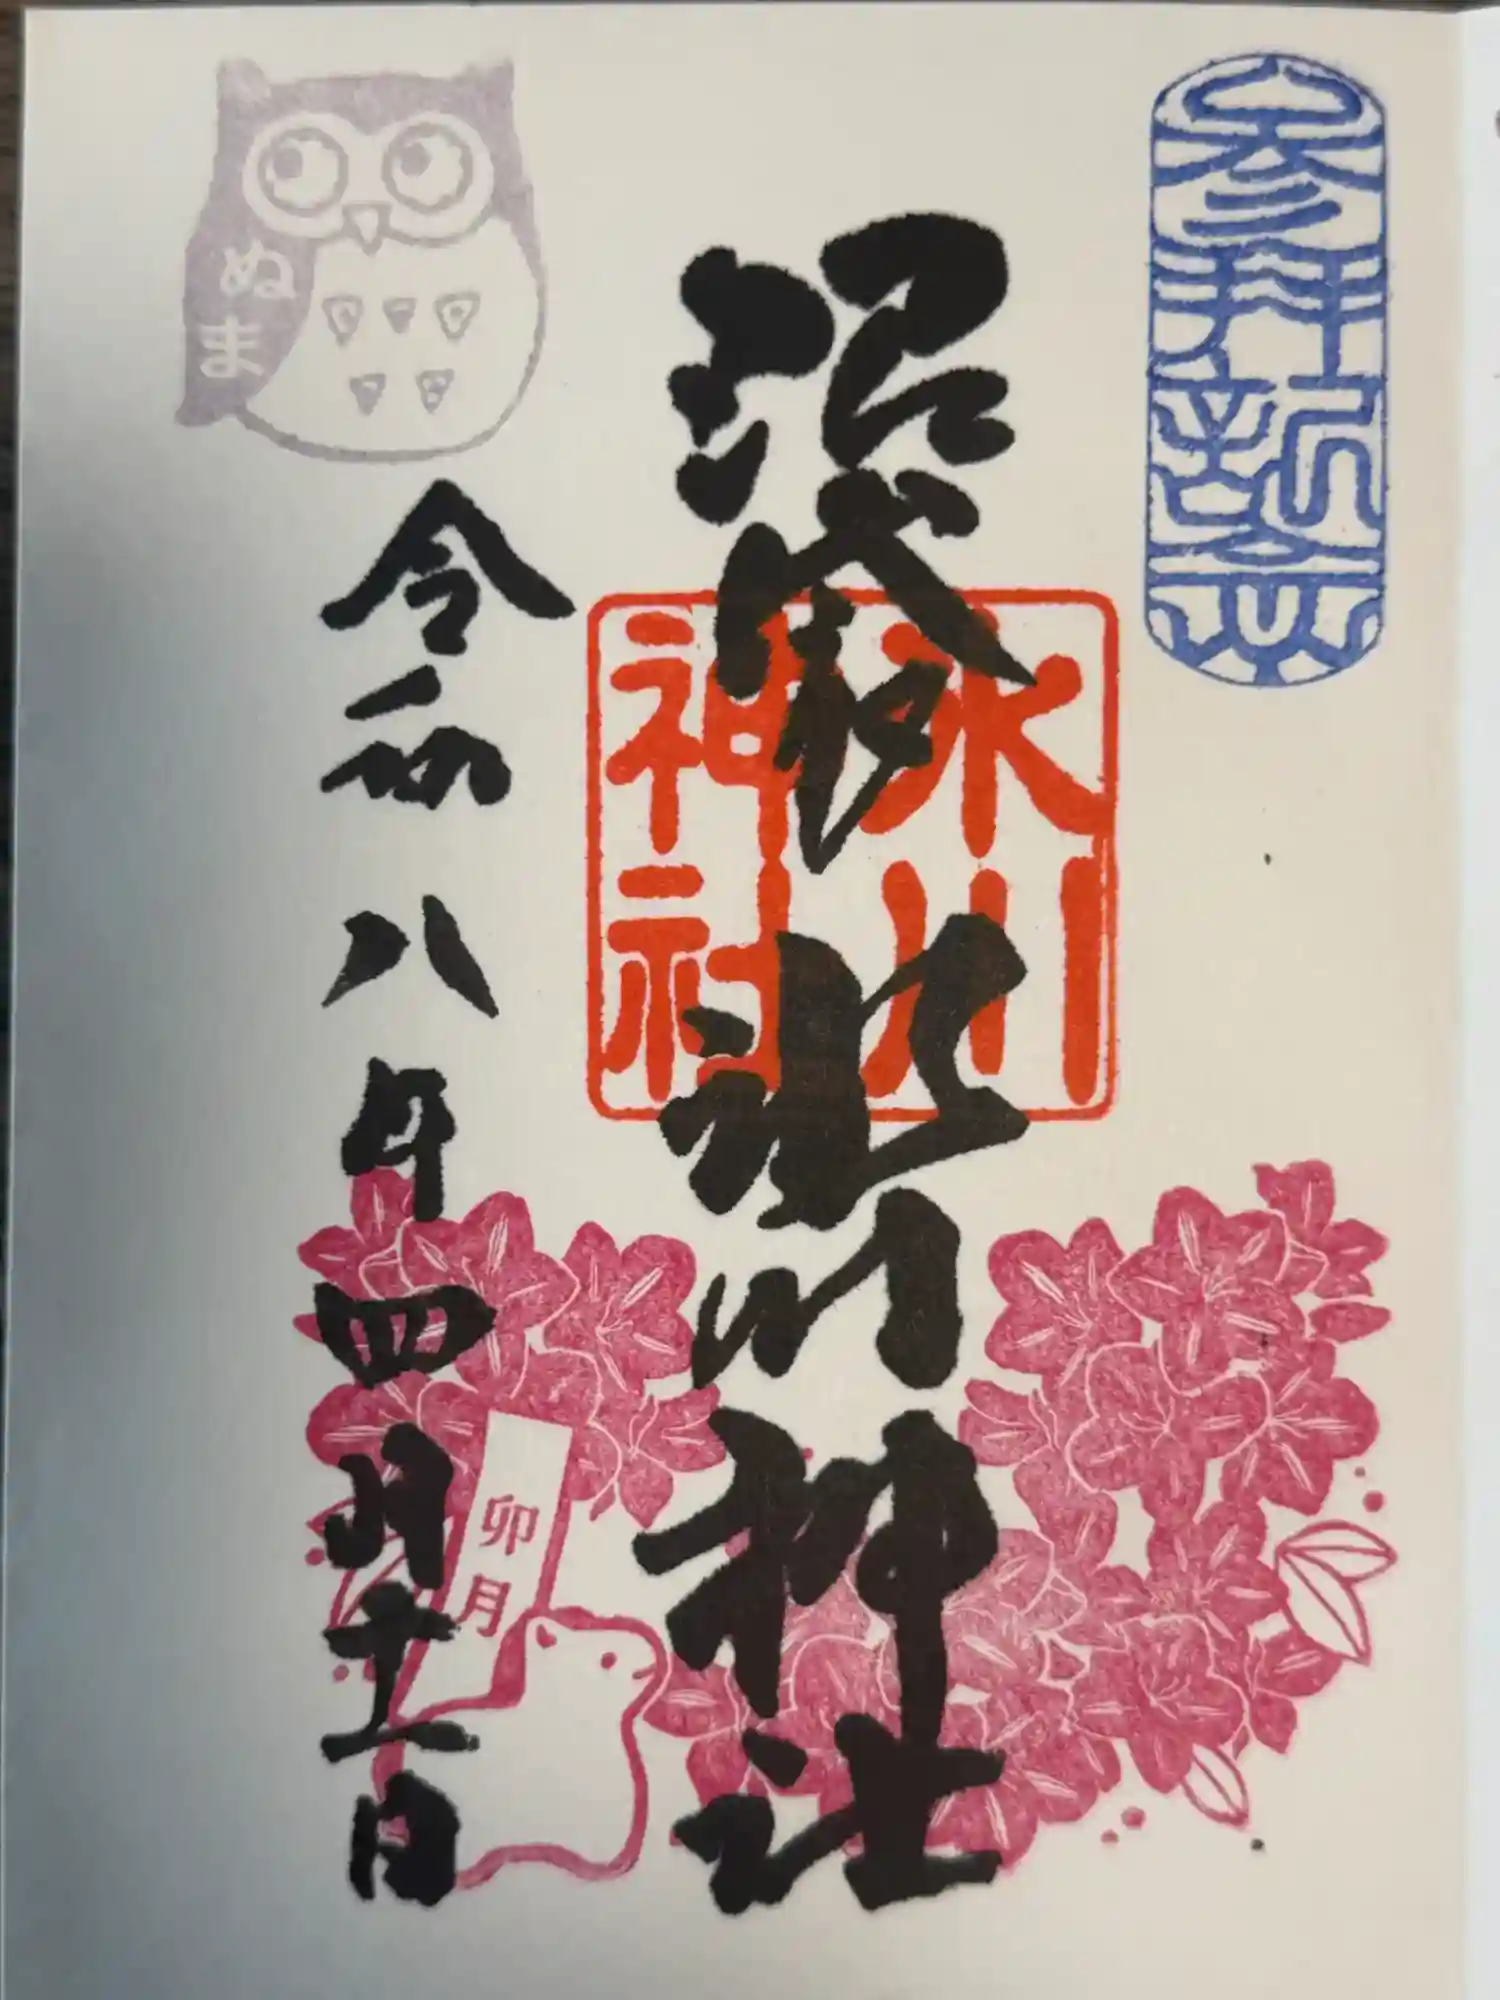 沼袋 氷川神社
氷川
神社
令和八年四月十一日
ぬま
卯月